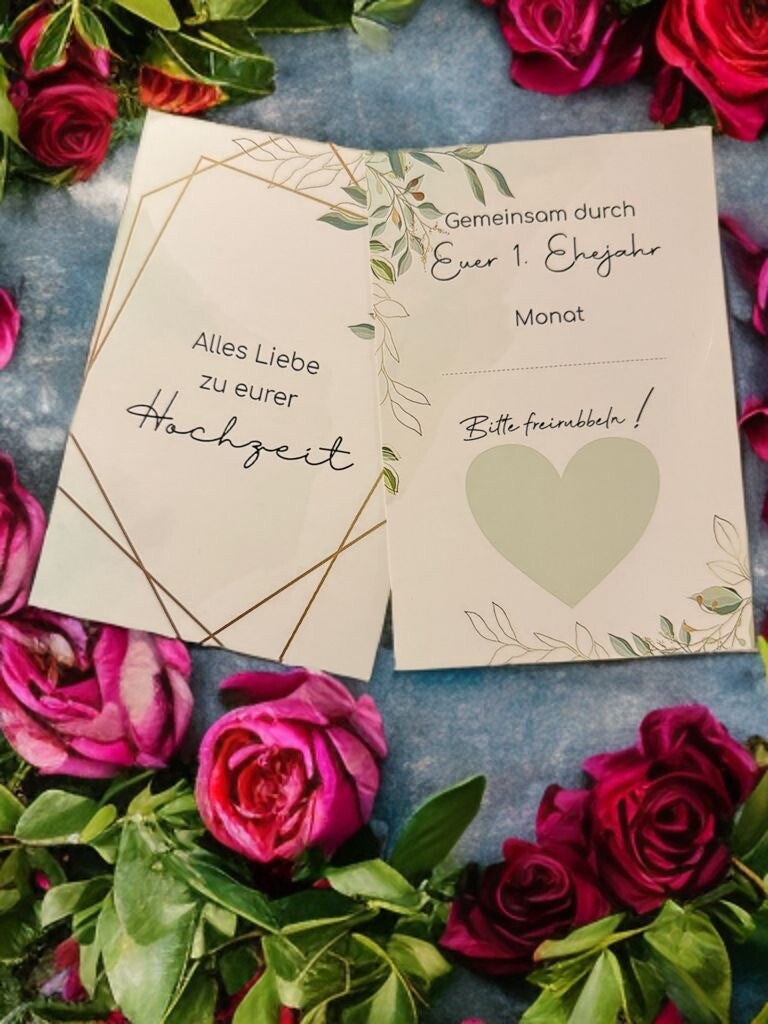 Alles Liebe
zu eurer
Hochzeit
Gemeinsam durch
Euer 1. Ehejahr
Monat
Bitte freirubbeln!